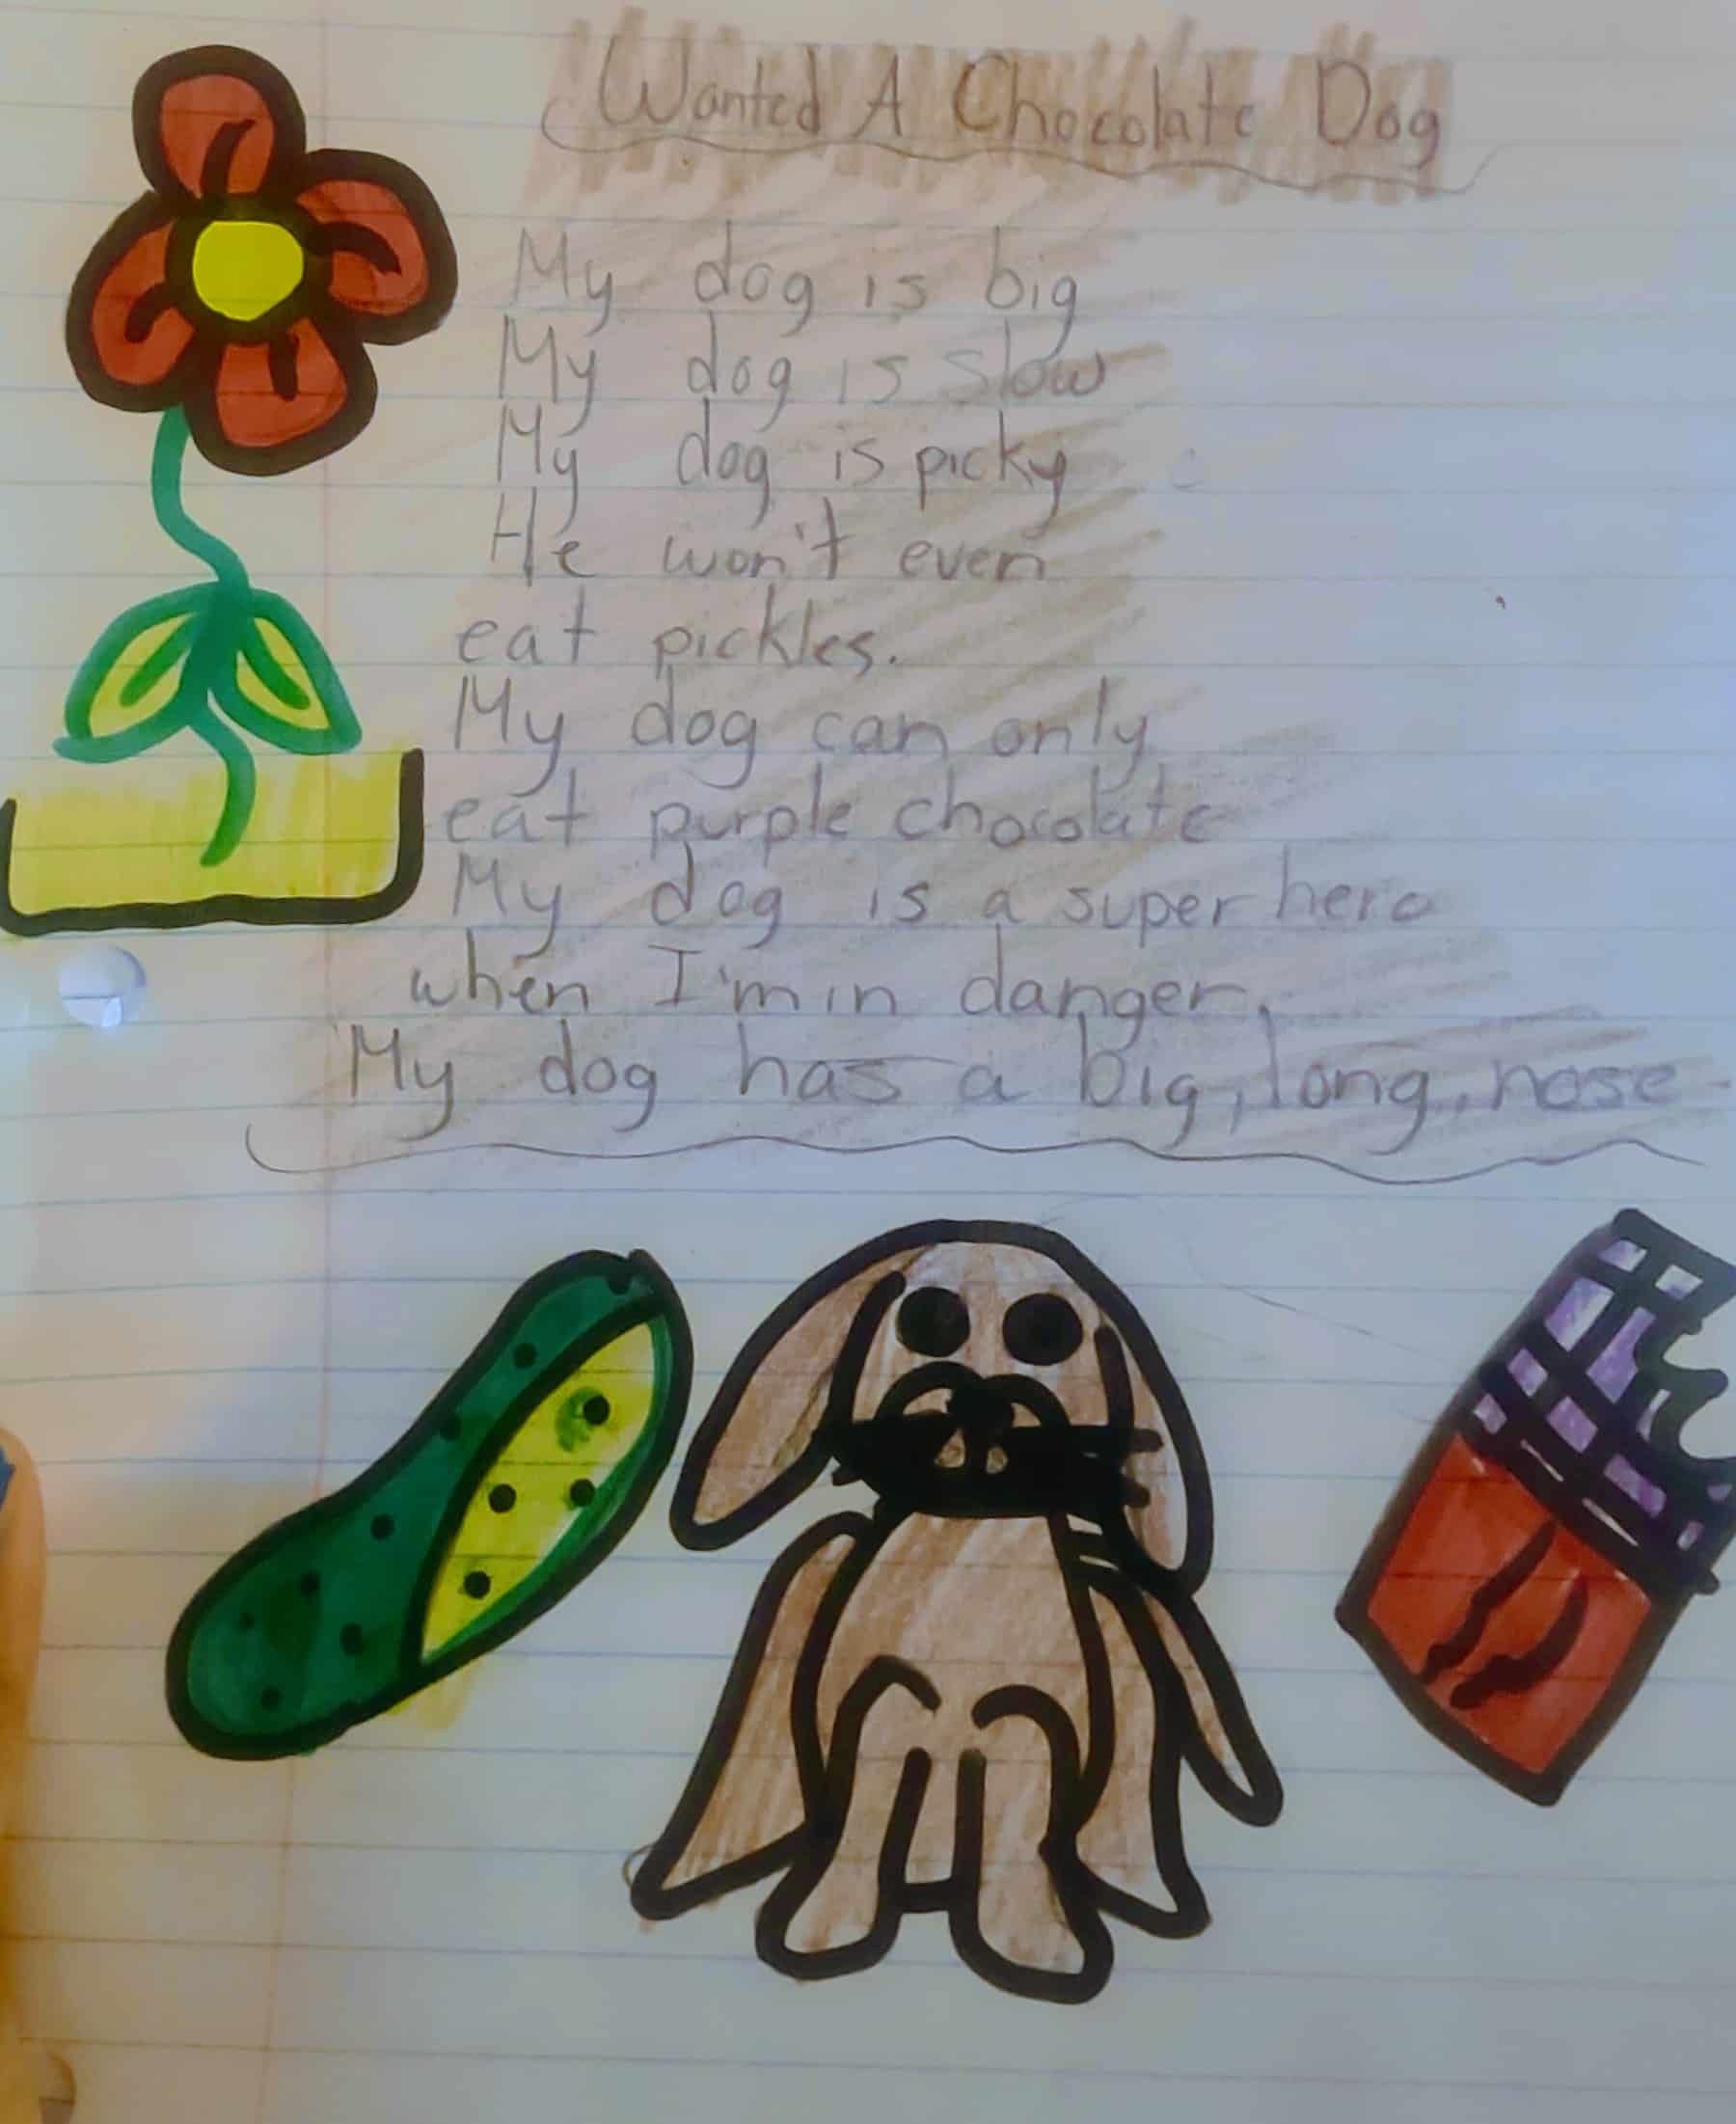 Wanted A Chocolate Dog
My dog is big
My dog is slow
My dog is picky
He won't even
eat pickles.
My dog can only
eat purple chocolate
My dog is a super hero
when I'm in danger.
My dog has a big, long, nose